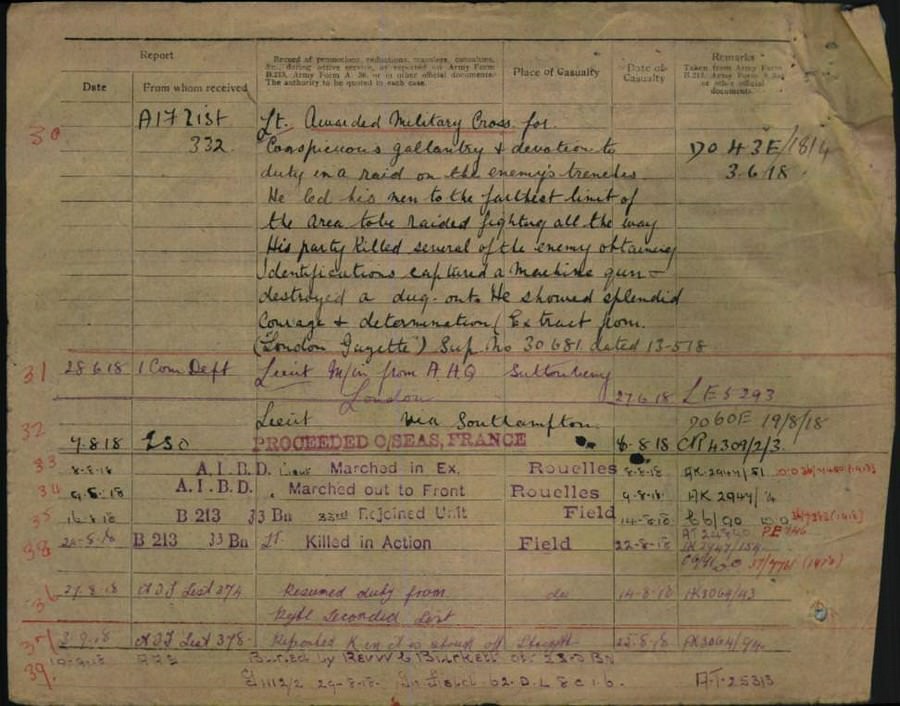 Report
Record of promotions, reductions, transfers, casualties,
&c., during active service, as reported on Army Form
B.213, Army Form A. 36, or in other official documents.
The authority to be quoted in each case.
Place of Casualty
Date of
Casualty
Remarks
Taken from Army Form
B.213, Army Form A.36,
or other official
documents.
Date
From whom received
30
AIF List
332
Lt. Awarded Military Cross for
Conspicuous gallantry & devotion to
DO 43E/1814
duty in a raid on the enemy's trenches.
3.6.18
He led his men to the farthest limit of
the area to be raided fighting all the way
His party killed several of the enemy obtaining
identifications captured a machine gun &
destroyed a dug-out. He showed splendid
Courage & determination (Extract from
(London Gazette) Sup. No 30681 dated 13-5-18
31
28 6 18
1 Com Dept
Lieut M/in from A HQ
Sutton Veny
London
27 6 18
LE 5293
32
Lieut via Southampton
DO 60E 19/8/18
7.8.18
ISO
PROCEEDED O/SEAS, FRANCE
8-8-18
CR 4309/2/3.
33
8-8-18
A.I.B.D.
Lieut Marched in Ex.
Rouelles
8-8-18
AK 2947/51
34
9-8-18
A.I.B.D.
Marched out to Front
Rouelles
9-8-18
AK 2947/
35
16-8-18
B 213 33 Bn
33rd Rejoined Unit
Field
14-8-18
38
B 213 33 Bn
Lt. Killed in Action
Field
22-8-18
36
27.8.18
AIF List 374
Resumed duty from
do
14-8-18
AK3064/43
Regtl Seconded List
37
2-9-18
AIF List 378
Reported K in A is struck off Strength
22-8-18
AK3064/94
39.
Buried by Rev W E Blackett att 33rd BN
29-8-18. 62.D.L 8 c 1.6.
AT-25313